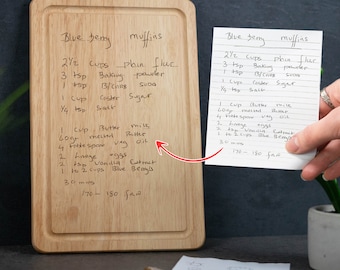 Blue berry muffins
2½ cups plain flour
3 tsp Baking powder
1 tsp Bicarb soda
1 cup Caster Sugar
¼ tsp Salt
1 cup Butter milk
60gr melted Butter
4 tablespoon veg oil
2 large eggs
2 tsp vanilla Extract
1 to 2 cups Blue Berrys
30 mins
170 - 180 fan
Blue berry muffins
2½ cups plain flour
3 tsp Baking powder
1 tsp Bicarb soda
1 cup Caster Sugar
¼ tsp Salt
1 cup Butter milk
60gr melted Butter
4 tablespoon veg oil
2 large eggs
2 tsp vanilla Extract
1 to 2 cups Blue Berrys
30 mins
170 - 180 fan